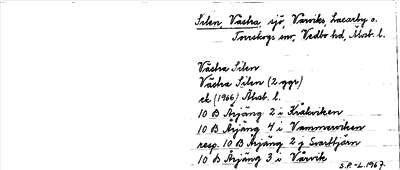 Silen, Västra, sjö, Vårviks, Lacarby o.
Torrskogs snr, Vedbo hd, Älvsb. l.
Västra Silen
Västra Silen (2 ggr)
ek (1966) Älvsb. l.
10 B Årjäng 2 i Kråkviken
10 B Årjäng 4 i Vammerviken
resp. 10 B Årjäng 2 g Svarttjärn
10 B Årjäng 3 i Vårvik
S.P.-L. 1967.